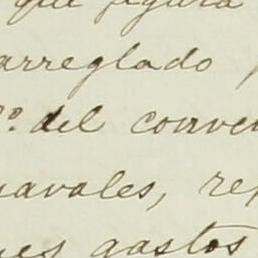 que figura
arreglado
º del conven
navales, re
gastos